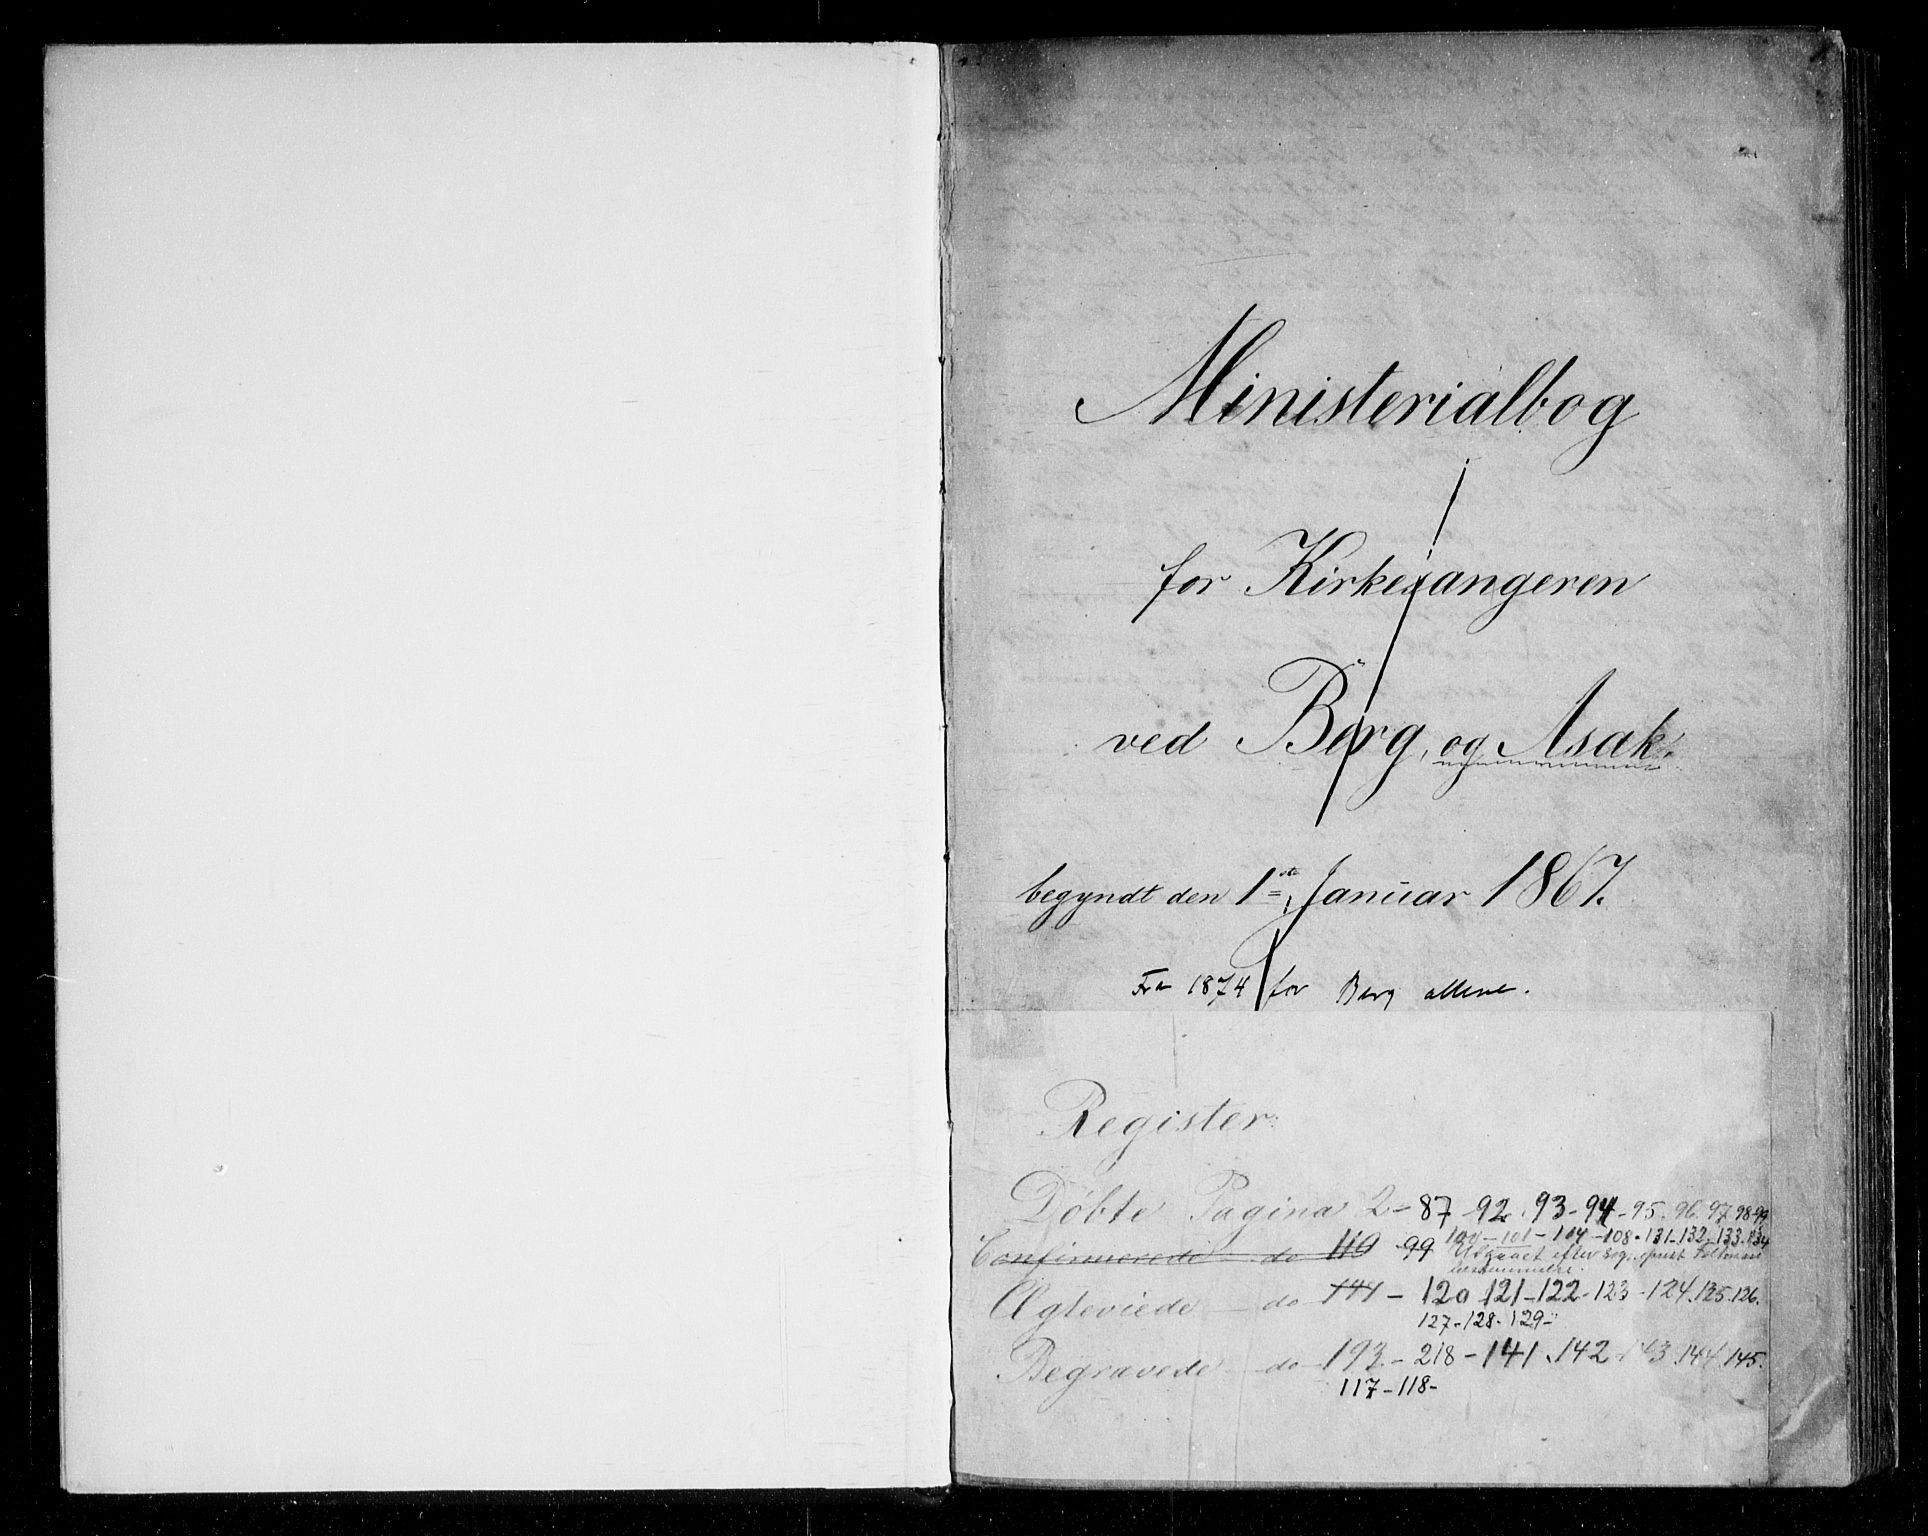 Ministerialbog
for Kirkesangeren
ved Berg, og Asak.
begyndt den 1ste Januar 1867.
Fra 1874 for Berg allene.
Register
Döbte Pagina 2 - 87 - 92. 93 - 94 - 95. 96. 97. 98-99
100 - 101 - 104 - 108 - 131 - 132 - 133. 134
Confirmerede do 110 - 99 Udgaaet efter
Ægteviede - do 144 - 120 121 - 122 - 123 - 124. 125. 126.
127 - 128 - 129 -
Begravede - do 193. - 218 - 141. 142 - 143. 144. 145.
117 - 118 -